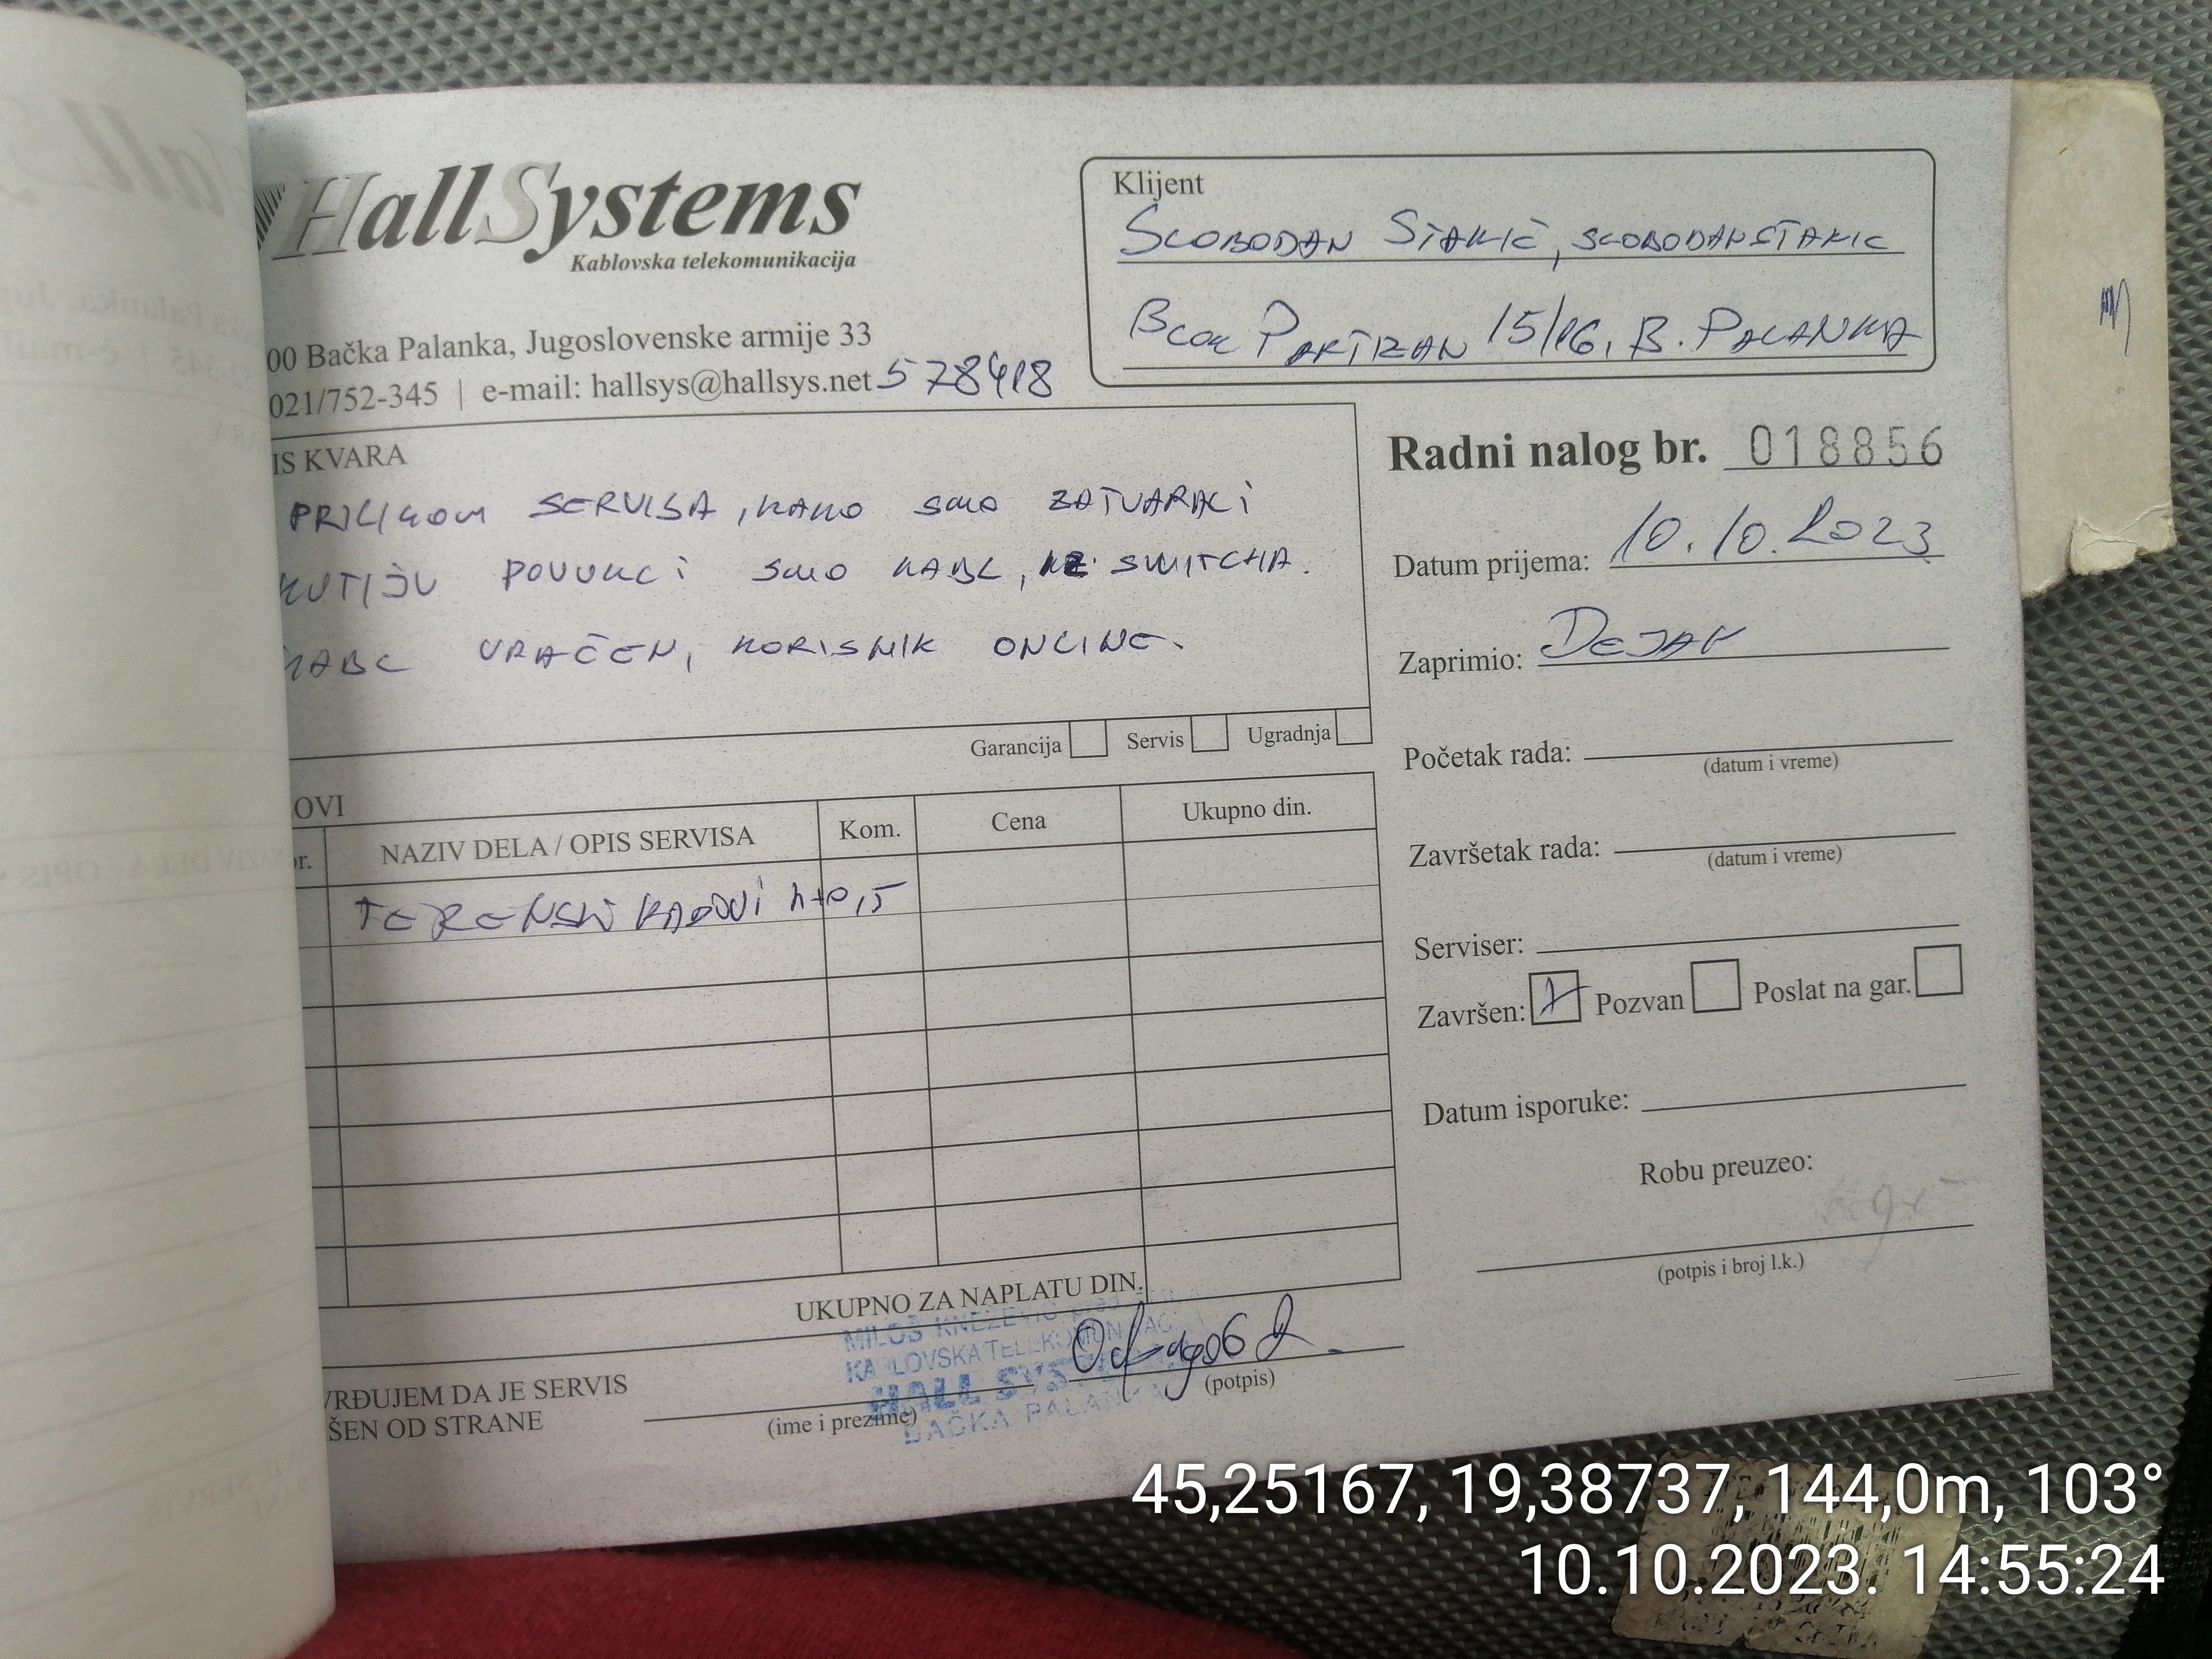 HallSystems
Kablovska telekomunikacija
00 Bačka Palanka, Jugoslovenske armije 33
021/752-345 | e-mail: hallsys@hallsys.net 578418
Klijent
SLOBODAN STAKIĆ, SLOBODANSTAKIC
BLOK PARTIZAN 15/16, B. PALANKA
IS KVARA
PRILIKOM SERVISA, KAKO SMO ZATVARALI
KUTIJU POVUKLI SMO KABL, IZ SWITCHA.
KABL VRAĆEN, KORISNIK ONLINE.
Garancija Servis Ugradnja
Radni nalog br. 018856
Datum prijema: 10.10.2023
Zaprimio: DEJAN
Početak rada:
(datum i vreme)
Završetak rada:
(datum i vreme)
Serviser:
Završen: X Pozvan Poslat na gar.
Datum isporuke:
Robu preuzeo:
(potpis i broj l.k.)
OVI
br. NAZIV DELA / OPIS SERVISA Kom. Cena Ukupno din.
TERENSKI RADOVI h+0,5
UKUPNO ZA NAPLATU DIN.
MILOŠ KNEŽEVIĆ
KABLOVSKA TELEKOMUNIKACIJA
HALL SYSTEMS
BAČKA PALANKA
VRĐUJEM DA JE SERVIS
ŠEN OD STRANE
(ime i prezime)
(potpis)
45,25167, 19,38737, 144,0m, 103°
10.10.2023. 14:55:24